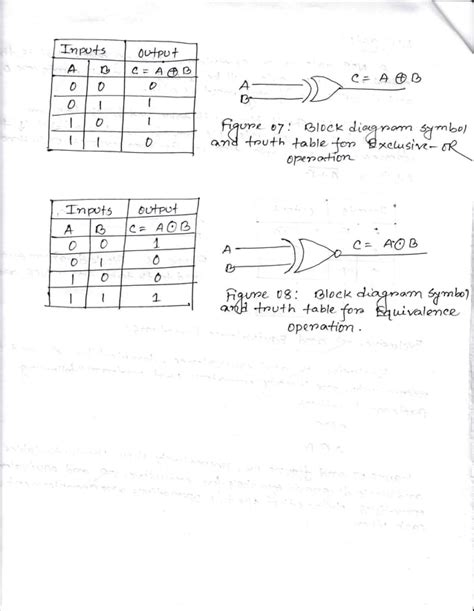 Inputs Output
A B C = A ⊕ B
0 0 0
0 1 1
1 0 1
1 1 0
A
B
C = A ⊕ B
Figure 07: Block diagram symbol
and truth table for Exclusive-OR
operation
Inputs Output
A B C = A ⊙ B
0 0 1
0 1 0
1 0 0
1 1 1
A
B
C = A⊙B
Figure 08: Block diagram symbol
and truth table for Equivalence
operation.